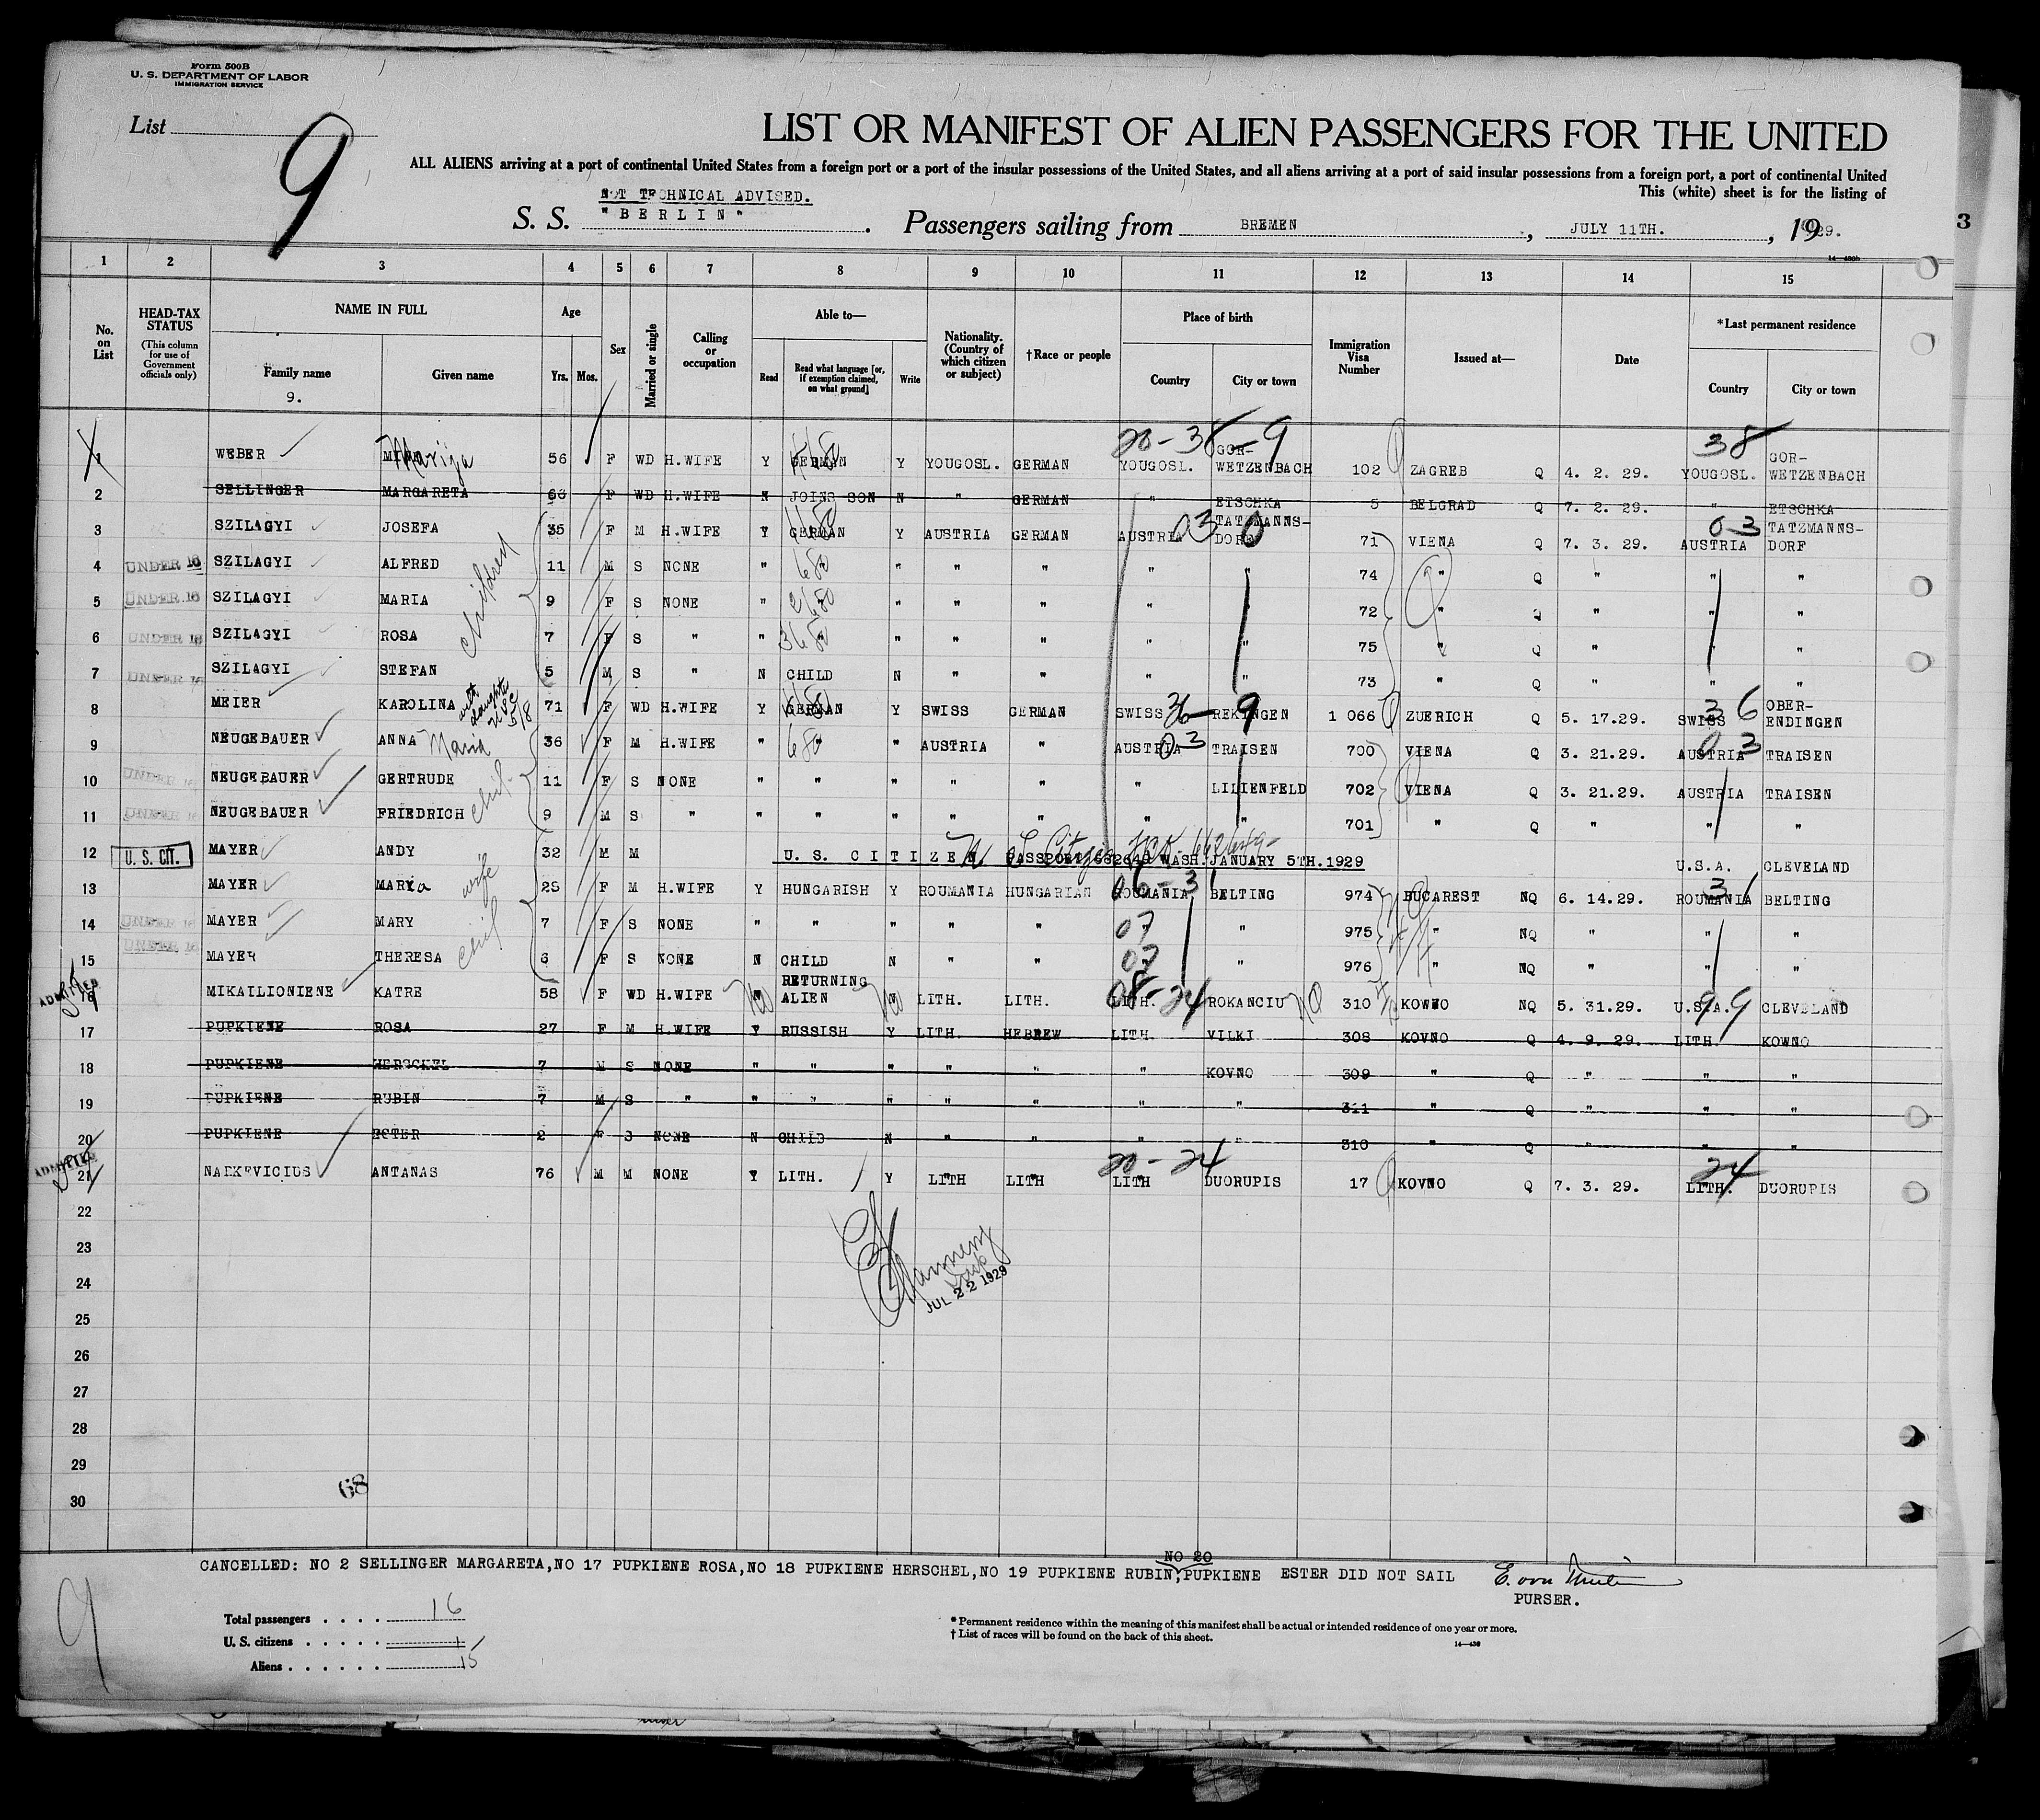 Form 500B
U. S. DEPARTMENT OF LABOR
IMMIGRATION SERVICE
List 9
LIST OR MANIFEST OF ALIEN PASSENGERS FOR THE UNITED
ALL ALIENS arriving at a port of continental United States from a foreign port or a port of the insular possessions of the United States, and all aliens arriving at a port of said insular possessions from a foreign port, a port of continental United
This (white) sheet is for the listing of
NOT TECHNICAL ADVISED.
S. S. "BERLIN" . Passengers sailing from BREMEN , JULY 11TH. , 1929.
3
14—430b
1 2 3 4 5 6 7 8 9 10 11 12 13 14 15
No. on List
HEAD-TAX STATUS (This column for use of Government officials only)
NAME IN FULL
Family name
Given name
9.
Age
Yrs. Mos.
Sex
Married or single
Calling or occupation
Able to—
Read
Read what language [or, if exemption claimed, on what ground]
Write
Nationality. (Country of which citizen or subject)
†Race or people
Place of birth
Country
City or town
Immigration Visa Number
Issued at—
Date
*Last permanent residence
Country
City or town
20-38 9 38
1 WEBER Marija 56 F WD H.WIFE Y GERMAN Y YOUGOSL. GERMAN YOUGOSL. GOR-WETZENBACH 102 ZAGREB Q 4. 2. 29. YOUGOSL. GOR-WETZENBACH
2 SELLINGER MARGARETA 66 F WD H.WIFE N JOINS SON N " GERMAN " ETSCHKA 5 BELGRAD Q 7. 2. 29. " ETSCHKA
3 SZILAGYI JOSEFA 35 F M H.WIFE Y GERMAN Y AUSTRIA GERMAN AUSTRIA 03 TATZMANNS-DORF 71 VIENA Q 7. 3. 29. AUSTRIA 03 TATZMANNS-DORF
4 UNDER 16 SZILAGYI ALFRED children 11 M S NONE " 680 " " " " " 74 " Q " " "
5 UNDER 16 SZILAGYI MARIA 9 F S NONE " 2680 " " " " " 72 " Q " " "
6 UNDER 16 SZILAGYI ROSA 7 F S " " 3680 " " " " " 75 " Q " " "
7 UNDER 16 SZILAGYI STEFAN 5 M S " N CHILD N " " " " 73 " Q " " "
8 MEIER KAROLINA with daughter 71 F WD H.WIFE Y GERMAN Y SWISS GERMAN SWISS 36-9 REKINGEN 1 066 ZUERICH Q 5. 17.29. SWISS 36 OBER-ENDINGEN
9 NEUGEBAUER ANNA Maria 36 F M H.WIFE " 680 " AUSTRIA " AUSTRIA 03 TRAISEN 700 VIENA Q 3. 21.29. AUSTRIA 03 TRAISEN
10 UNDER 16 NEUGEBAUER GERTRUDE 11 F S NONE " " " " " " LILIENFELD 702 VIENA Q 3. 21.29. AUSTRIA TRAISEN
11 UNDER 16 NEUGEBAUER FRIEDRICH 9 M S " " " " " " " " 701 " Q " " "
12 U. S. CIT. MAYER ANDY 32 M M U.S. CITIZEN PASSPORT 662649 WASH. JANUARY 5TH.1929 U.S.A. CLEVELAND
13 MAYER MARYa wife 25 F M H.WIFE Y HUNGARISH Y ROUMANIA HUNGARIAN ROUMANIA BELTING 974 BUCAREST NQ 6. 14.29. ROUMANIA 31 BELTING
14 UNDER 16 MAYER MARY 7 F S NONE " " " " " 07 " 975 " NQ " " "
15 UNDER 16 MAYER THERESA 6 F S NONE N CHILD N " " 07 " 976 " NQ " " "
16 ADMITTED MIKAILIONIENE KATRE 58 F WD H.WIFE N RETURNING ALIEN N LITH. LITH. LITH. 08-24 ROKANCIU NQ 310 KOWNO NQ 5. 31.29. U.S.A. 99 CLEVELAND
17 PUPKIENE ROSA 27 F M H.WIFE Y RUSSISH Y LITH. HEBREW LITH. VILKI 308 KOVNO Q 4. 9. 29. LITH KOWNO
18 PUPKIENE HERSCHEL 7 M S NONE " " " " " " KOVNO 309 " Q " " "
19 PUPKIENE RUBIN 7 M S " " " " " " " " 311 " Q " " "
20 PUPKIENE ESTER 2 F S NONE N CHILD N " " " " 310 " Q " " "
20-24 24
21 ADMITTED NARKEVICIUS ANTANAS 76 M M NONE Y LITH. Y LITH LITH LITH DUORUPIS 17 KOVNO Q 7. 3. 29. LITH. DUORUPIS
22
23
JUL 22 1929
24
25
26
27
28
29
68
30
CANCELLED: NO 2 SELLINGER MARGARETA,NO 17 PUPKIENE ROSA,NO 18 PUPKIENE HERSCHEL,NO 19 PUPKIENE RUBIN, NO 20 PUPKIENE ESTER DID NOT SAIL
PURSER.
9
Total passengers . . . . 16
U. S. citizens . . . . . 1
Aliens . . . . . . 15
* Permanent residence within the meaning of this manifest shall be actual or intended residence of one year or more.
† List of races will be found on the back of this sheet.
14—430